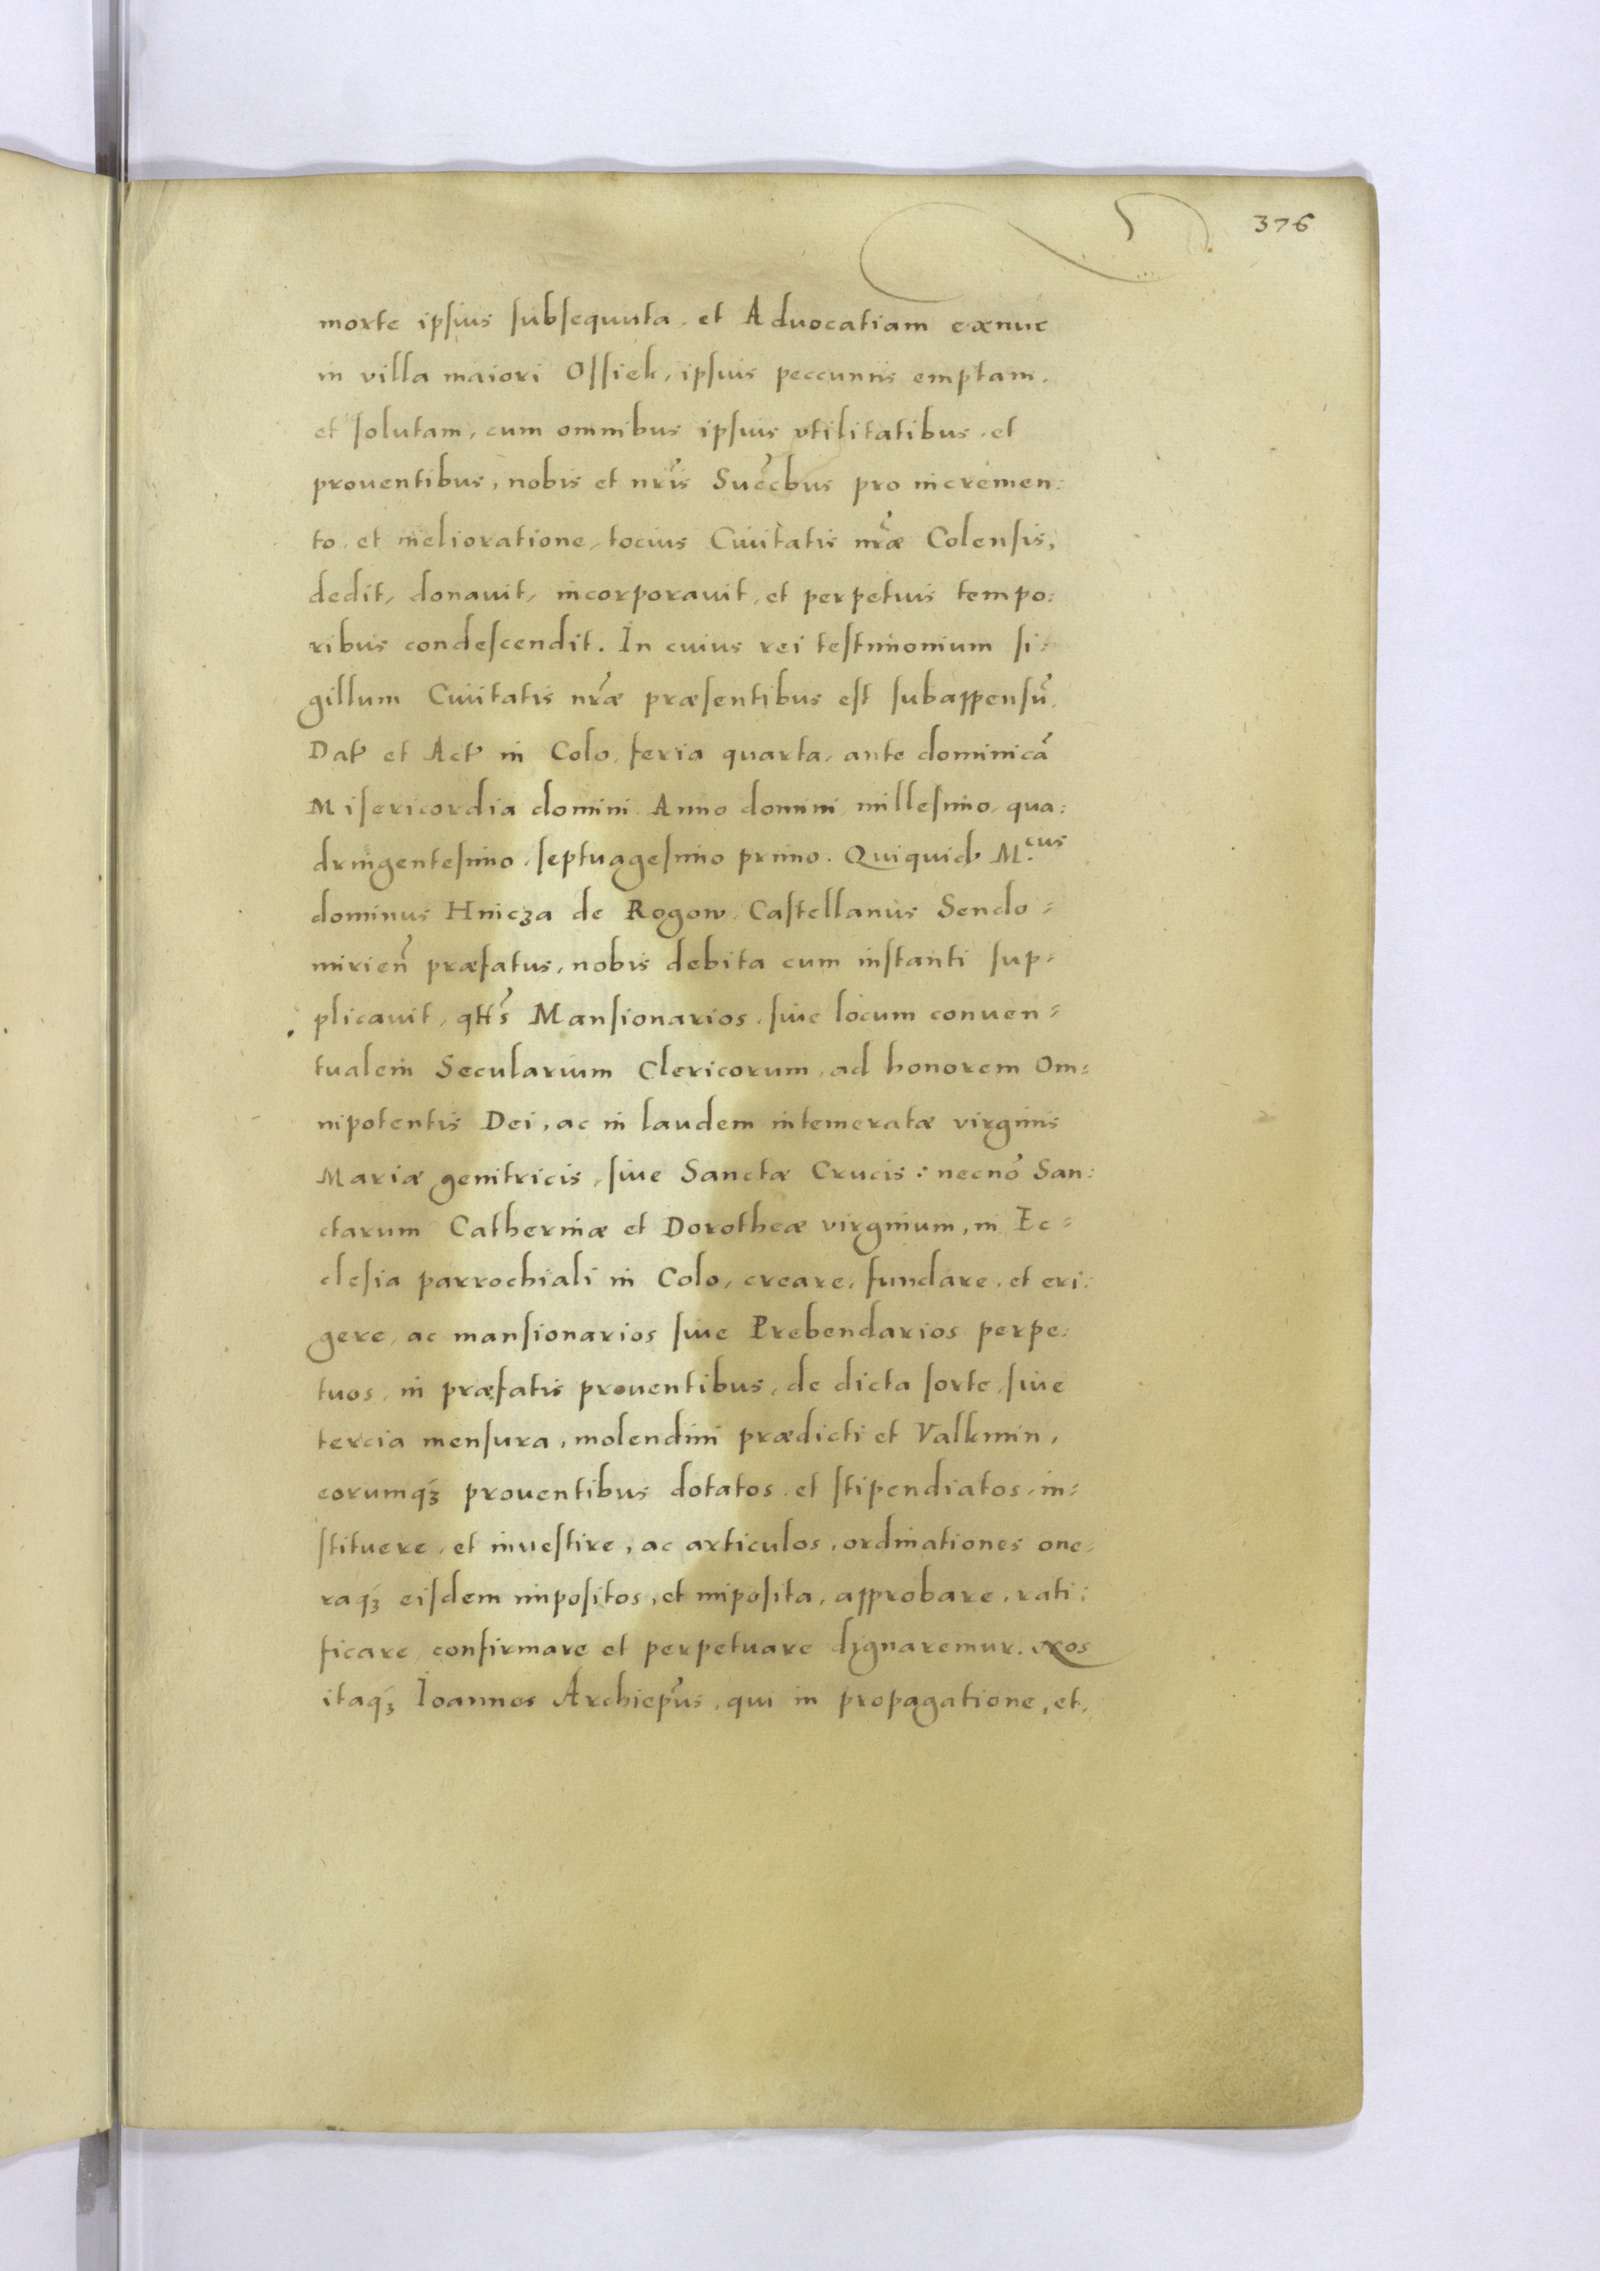 376
morte ipsius subsequuta, et Advocatiam exnuc
in villa maiori Ossiek, ipsius peccuniis emptam,
et solutam, cum omnibus ipsius vtilitatibus, et
prouentibus, nobis et nr̃is Succ̃bus pro incremen:
to, et melioratione, tocius Ciuitatis nr̃æ Colensis,
dedit, donauit, incorporauit, et perpetuis tempo:
ribus condescendit. In cuius rei testimonium si:
gillum Ciuitatis nr̃æ præsentibus est subappensũ.
Dat et Act in Colo, feria quarta, ante dominicã
Misericordia domini Anno domini millesimo, qua:
dringentesimo, septuagesimo primo. Quiquid M.cus
dominus Hnicza de Rogow, Castellanus Sendo=
mirien̄ præfatus, nobis debita cum instanti sup=
plicauit, qtt̃s Mansionarios, siue locum conuen=
tualem Secularium Clericorum, ad honorem Om=
nipotentis Dei, ac in laudem intemeratæ virginis
Mariæ genitricis, siue Sanctæ Crucis: necnõ San:
ctarum Catherinæ et Dorotheæ virginium, in Ec=
clesia parrochiali in Colo, creare, fundare, et eri:
gere, ac mansionarios siue Prebendarios perpe:
tuos, in præfatis prouentibus, de dicta sorte, siue
tercia mensura, molendini prædicti et Valkmin,
eorumqꝫ prouentibus dotatos, et stipendiatos, in=
stituere, et inuestire, ac articulos, ordinationes one=
raqꝫ eisdem impositos, et imposita, approbare, rati:
ficare, confirmare et perpetuare dignaremur. Nos
itaqꝫ Ioannes Archiep̃us, qui in propagatione, et,